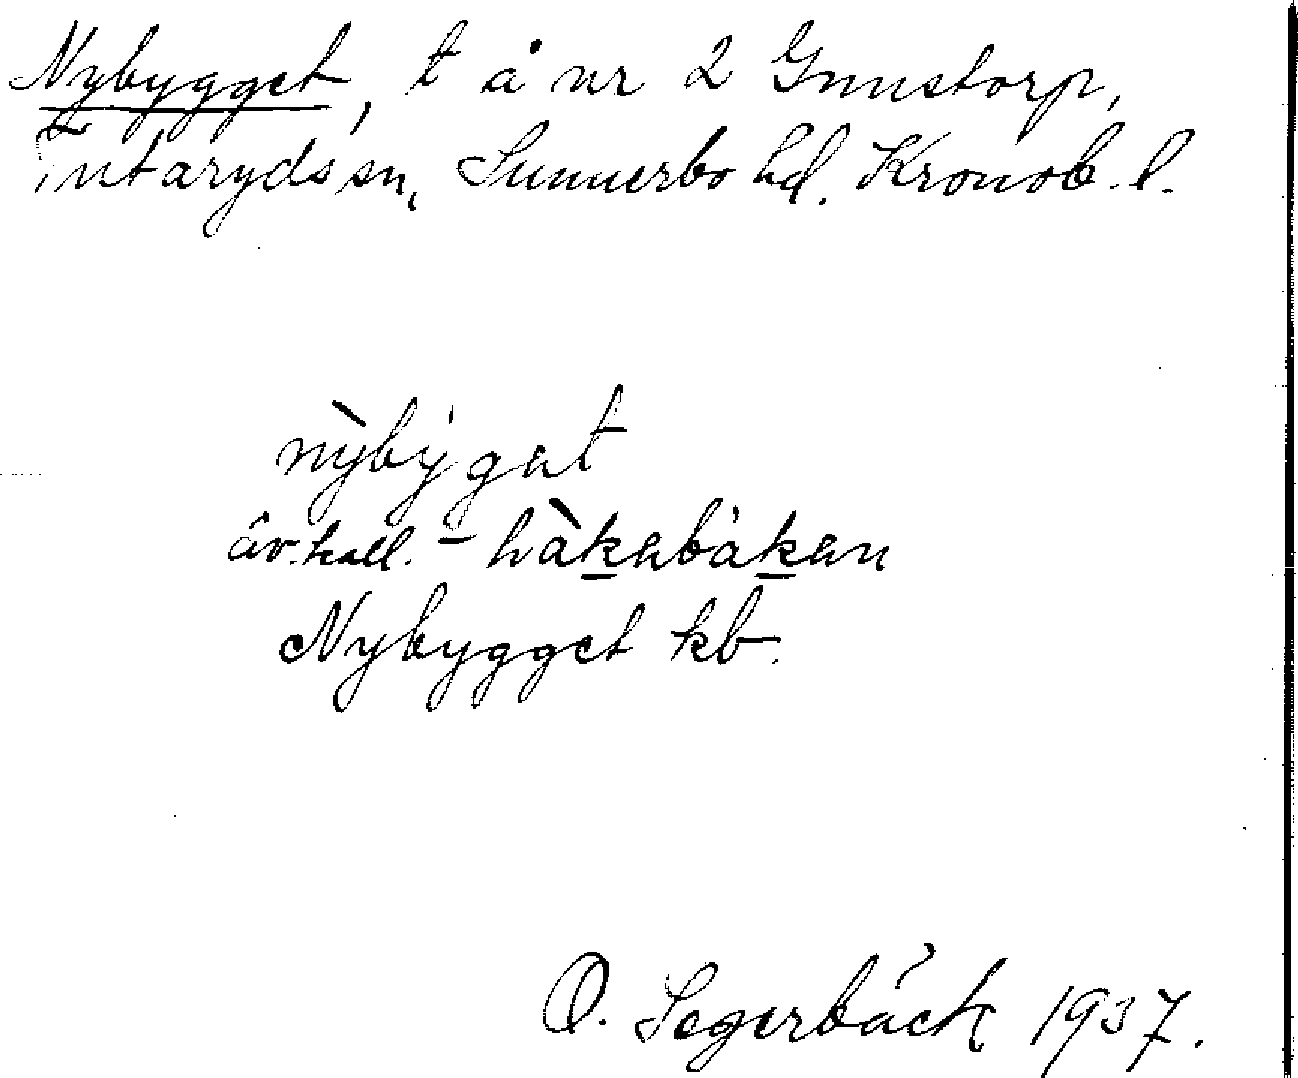 Nybygget, t å nr 2 Gunstorp,
Tutaryds sn, Sunnerbo hd. Kronob. l.
nỳbýgət
äv. kall. - hàkəbàkən
Nybygget kb.
O. Segerbäck 1937.